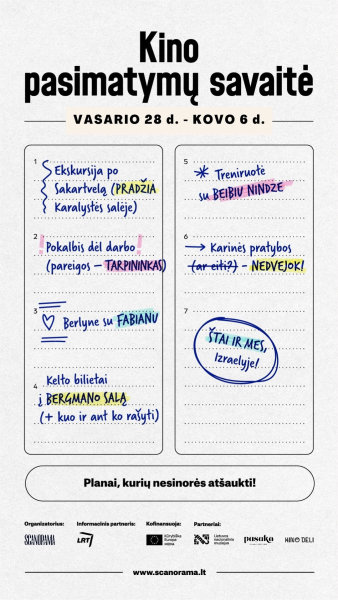 Kino
pasimatymų savaitė
VASARIO 28 d. - KOVO 6 d.
1
Ekskursija po
Sakartvelą (PRADŽIA
Karalystės salėje)
2
! Pokalbis dėl darbo !
(pareigos – TARPININKAS)
3
Berlyne su FABIANU
4
Kelto bilietai
į BERGMANO SALĄ
(+ kuo ir ant ko rašyti)
5
Treniruotė
su BEIBIU NINDZE
6
Karinės pratybos
(ar eiti?) – NEDVEJOK!
7
ŠTAI IR MES,
Izraelyje!
Planai, kurių nesinorės atšaukti!
Organizatorius:
SCANORAMA
Informacinis partneris:
LRT
Kofinansuoja:
Kūrybiška
Europa
MEDIA
Partneriai:
Lietuvos
nacionalinis
muziejus
pasaka
KINO DELI
www.scanorama.lt